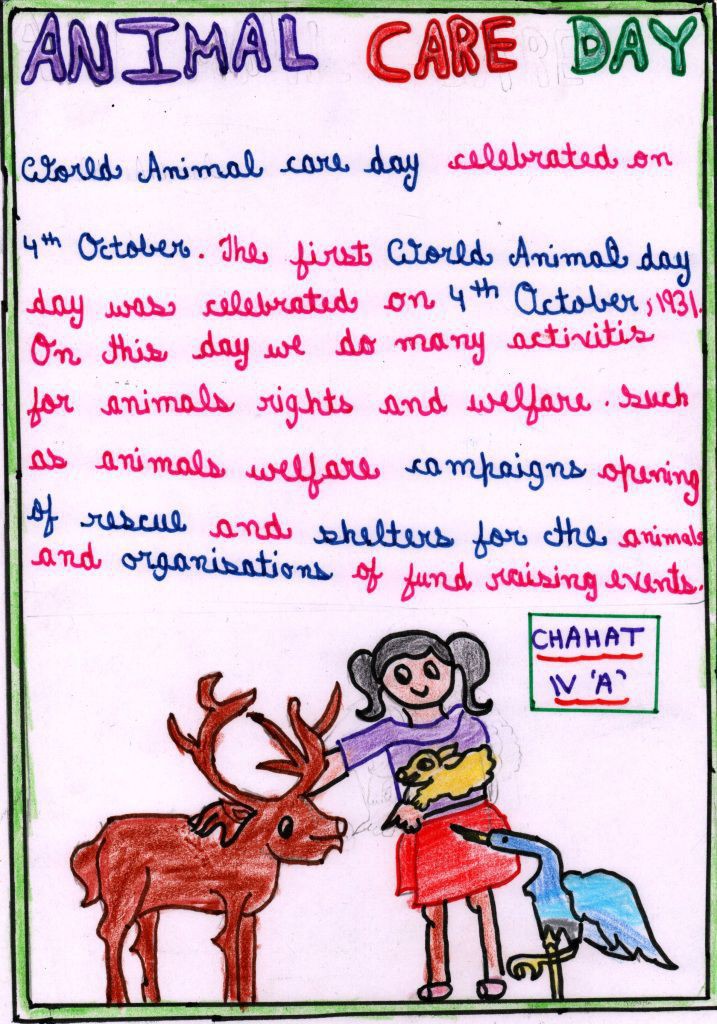 ANIMAL CARE DAY
World Animal care day celebrated on
4th October. The first World Animal day
day was celebrated on 4th October, 1931.
On this day we do many activitis
for animals rights and welfare. Such
as animals welfare campaigns opening
of rescue and shelters for the animals
and organisations of fund raising events.
CHAHAT
IV 'A'